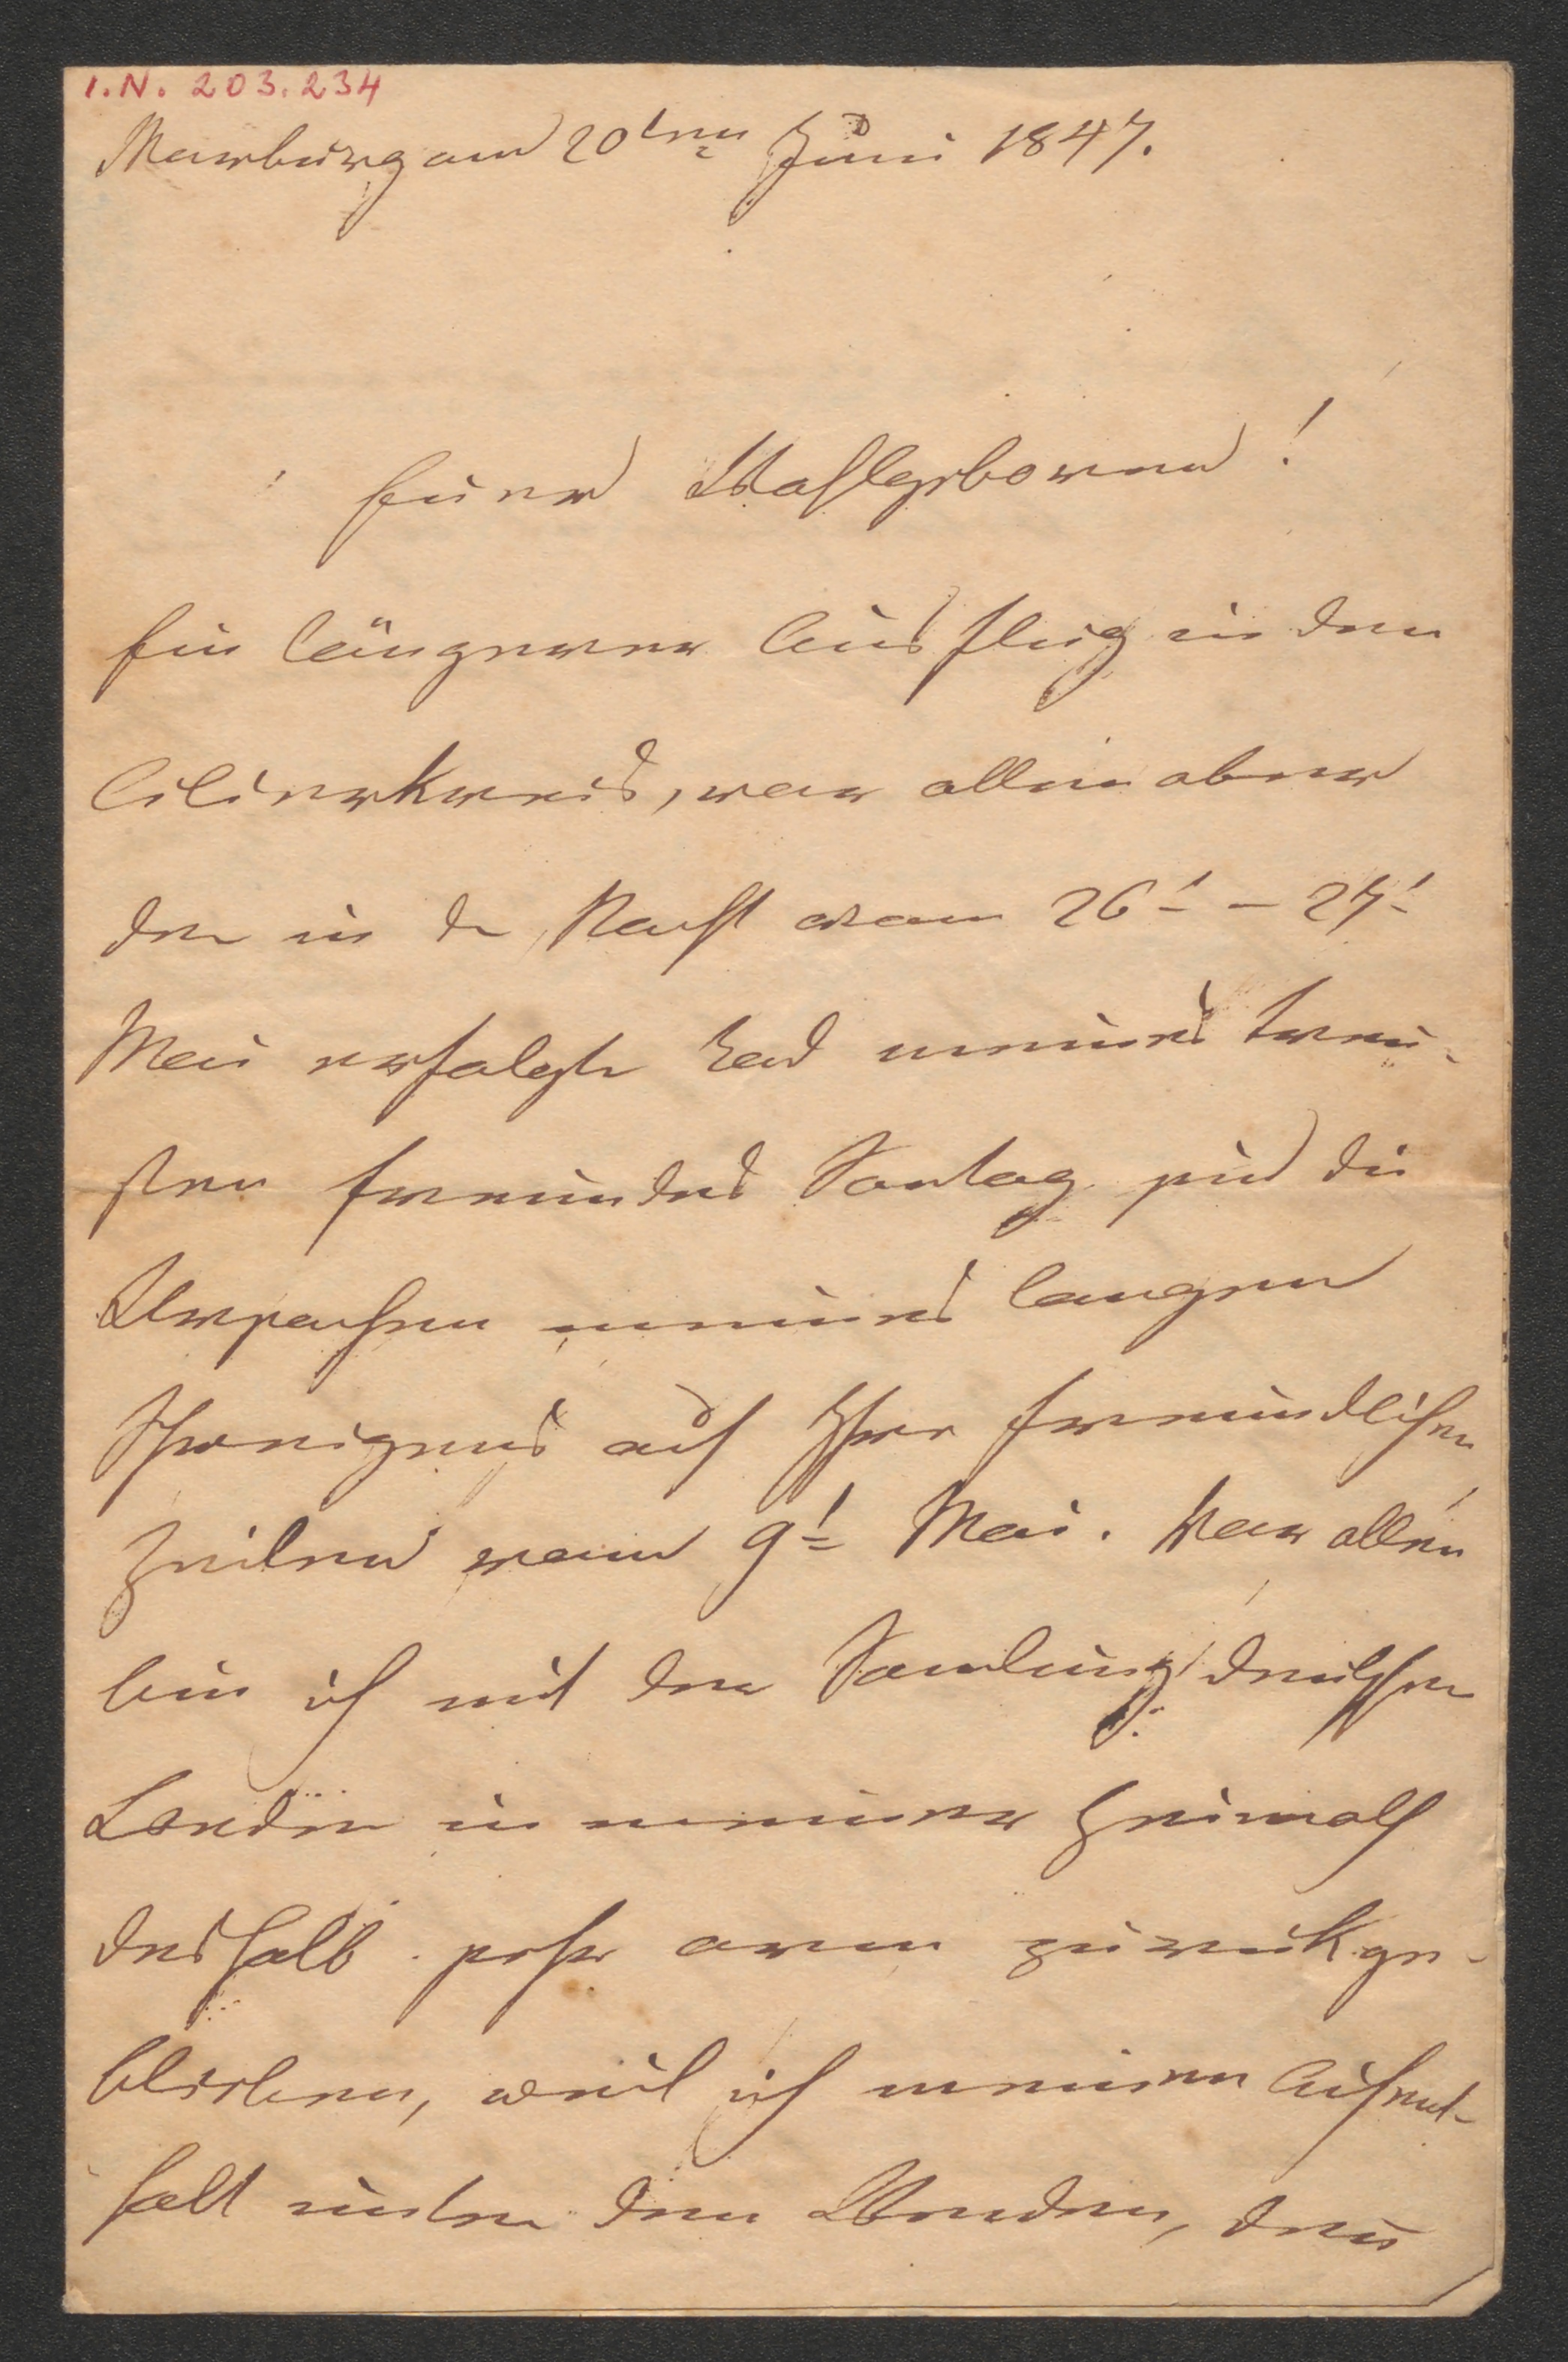 I.N. 203.234
Marburg am 20ten Juni 1847.
Euer Wohlgeboren!
Ein längerer Ausflug in den
Cilierkreis, vor allem aber
der in der Nacht vom 26t – 27t
Mai erfolgte Tod meines treu-
sten Freundes Sontag sind die
Ursachen meines langen
Schweigens auf Ihre freundlichen
Zeilen vom 9t Mai. Vor allem
bin ich mit der Samlung deutscher
Lander in meiner Heimath
deshalb sehr arm zurükge-
blieben, weil ich meinen Aufent-
halt unter den Wenden, den